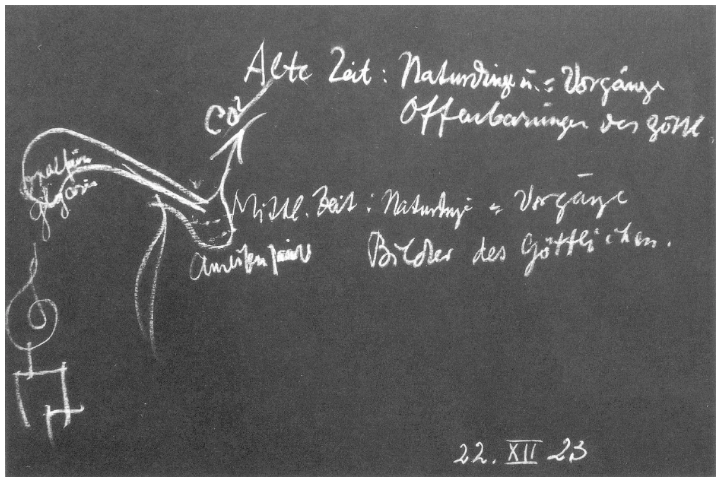 Alte Zeit: Naturdinge u. = Vorgänge
Offenbarungen des göttl
CO²
Oxalsäure
Glyzerin
Mittl. Zeit: Naturdinge = Vorgänge
Bilder des Göttlichen.
Ameisensäure
22. XII 23